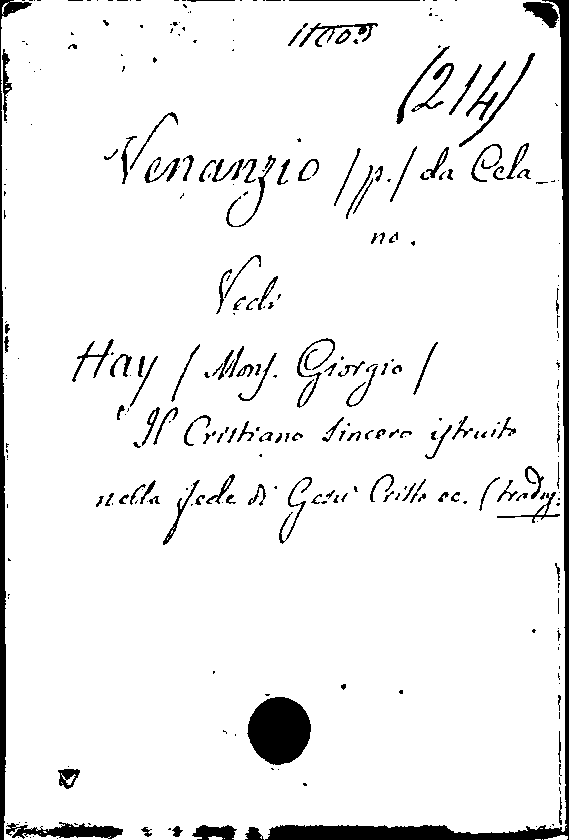 11009
(214)
Venanzio /p./ da Cela_
no.
Vedi
Hay / Mons. Giorgio /
Il Cristiano sincero istruito
nella fede di Gesù Cristo ec. (traduz.